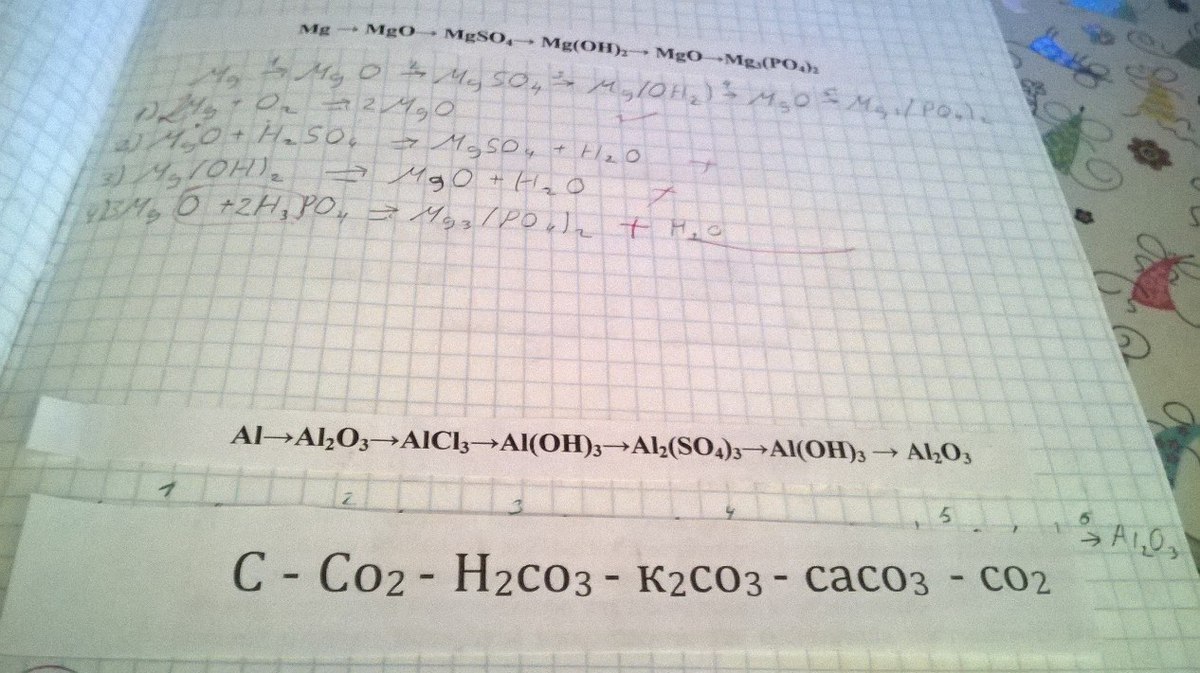 Mg → MgO → MgSO₄ → Mg(OH)₂ → MgO → Mg₃(PO₄)₂
Mg →¹ MgO →² MgSO₄ →³ Mg(OH₂) →⁴ MgO →⁵ Mg₃(PO₄)₂
1) 2Mg + O₂ → 2MgO
2) MgO + H₂SO₄ → MgSO₄ + H₂O +
3) Mg(OH)₂ → MgO + H₂O +
MgO + 2H₃PO₄ → Mg₃(PO₄)₂ + H₂O
Al→Al₂O₃→AlCl₃→Al(OH)₃→Al₂(SO₄)₃→Al(OH)₃ → Al₂O₃
1 2 3 4 5 6
→ Al₂O₃
C - Co2 - H2co3 - к2co3 - caco3 - co2